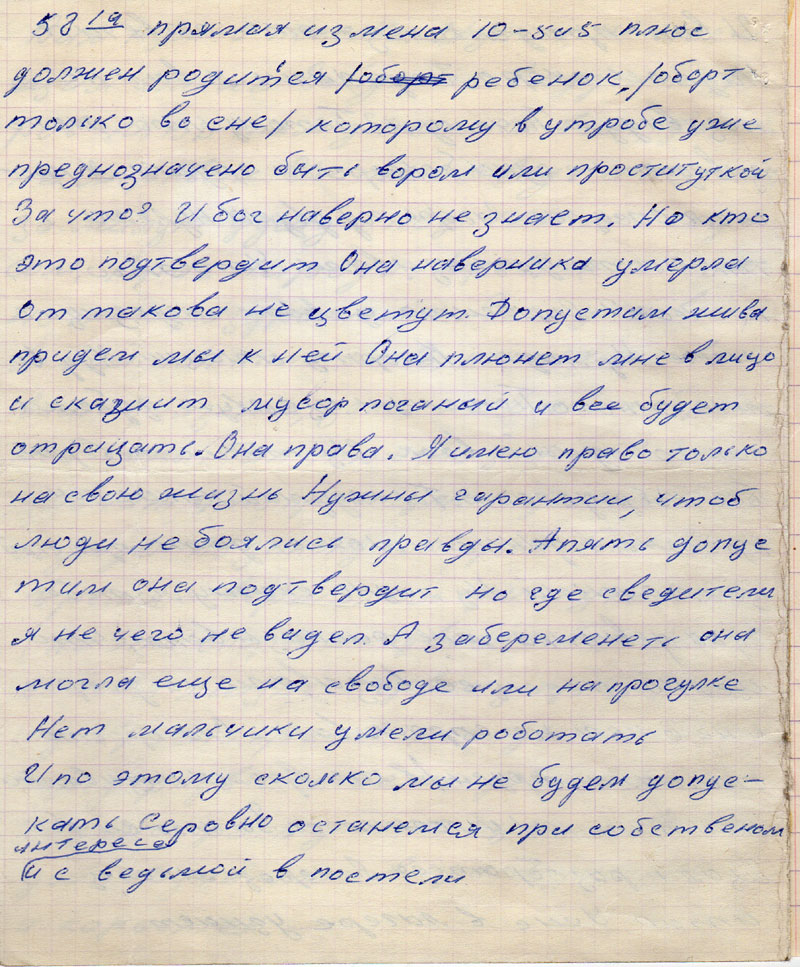 58 1а прямая измена 10-5и5 плюс
должен родится /оборт ребенок, /оборт
только во сне/ которому в утробе уже
преднозначено быть вором или проституткой
За что? И бог наверно не знает. Но кто
это подтвердит Она наверника умерла
от такова не цветут. Допустим жива
придем мы к ней Она плюнет мне в лицо
и скажит мусор поганый и все будет
отрицать. Она права. Я имею право только
на свою жизнь Нужны гарантии, чтоб
люди не боялись правды. Апять допус
тим она подтвердит но где сведители
я не чего не видел. А забеременеть она
могла еще на свободе или на прогулке
Нет мальчики умели роботать
И по этому сколько мы не будем допус-
кать Серовно останемся при собственом
интересе
и с ведьмой в постели